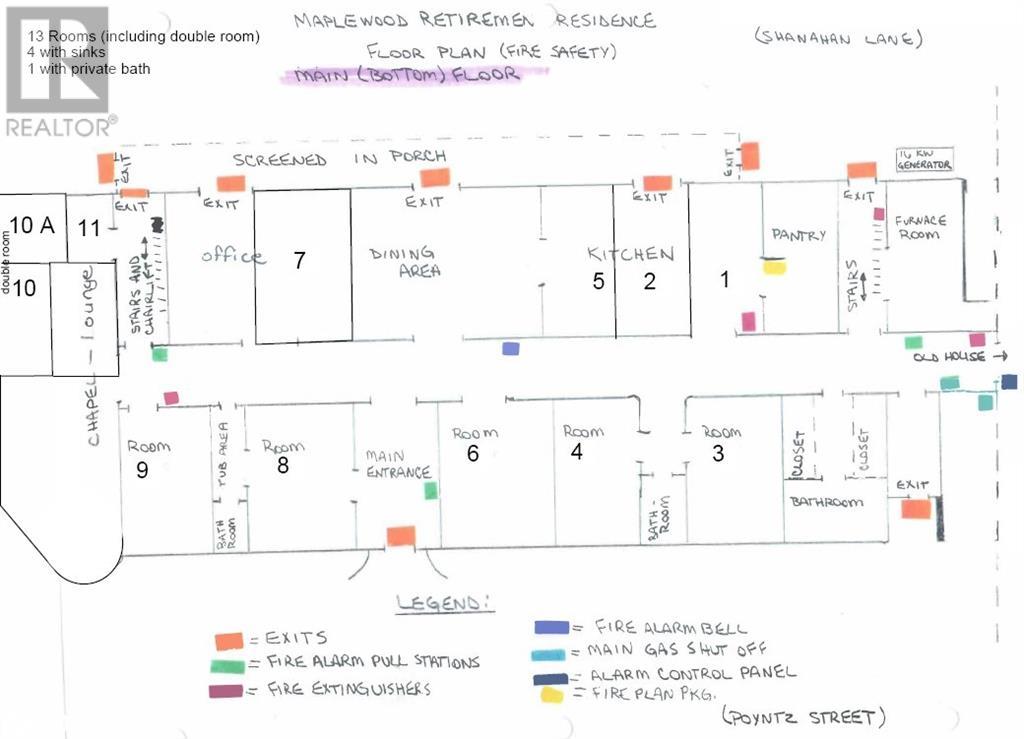 MAPLEWOOD RETIREMEN RESIDENCE
FLOOR PLAN (FIRE SAFETY)
MAIN (BOTTOM) FLOOR
(SHANAHAN LANE)
13 Rooms (including double room)
4 with sinks
1 with private bath
REALTOR®
SCREENED IN PORCH
EXIT
EXIT
EXIT
EXIT
EXIT
EXIT
EXIT
16 KW
GENERATOR
10 A
11
double room
10
STAIRS AND
CHAIRLIFT
office
7
DINING
AREA
KITCHEN
5
2
1
PANTRY
STAIRS
FURNACE
ROOM
CHAPEL - Lounge
OLD HOUSE →
Room
9
TUB AREA
BATH
ROOM
Room
8
MAIN
ENTRANCE
Room
6
Room
4
BATH-
ROOM
Room
3
CLOSET
CLOSET
BATHROOM
EXIT
LEGEND:
= EXITS
= FIRE ALARM PULL STATIONS
= FIRE EXTINGUISHERS
= FIRE ALARM BELL
= MAIN GAS SHUT OFF
= ALARM CONTROL PANEL
= FIRE PLAN PKG.
(POYNTZ STREET)